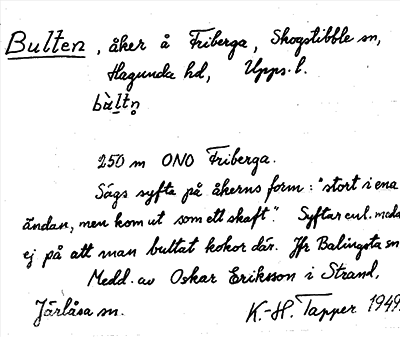 Bulten, åker å Friberga, Skogstibble sn,
Hagunda hd, Upps. l.
bàltn̥
250 m ONO Friberga.
Sägs syfta på åkerns form: "stort i ena
ändan, men kom ut som ett skaft". Syftar enl. medd.
ej på att man bultat kokor där. Jfr Balingsta sn
Medd. av Oskar Eriksson i Strand,
Järlåsa sn. K.-H. Tapper 1949.